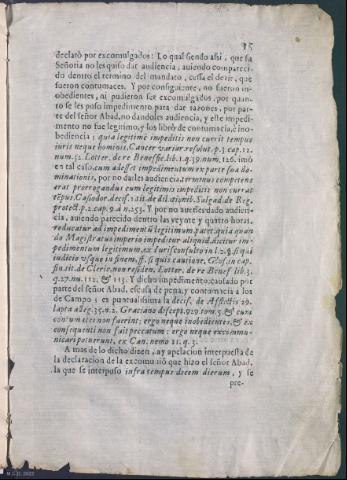 35
declarò por excomulgados: Lo qual siendo assi, que su
Señoria no les quiso dar audiencia, auiendo compareci-
do dentro el termino del mandato, cessa el dezir, que
fueron contumaces. Y por consiguiente, no fueron in-
obedientes, ni pudieron ser excomulgados, por quan-
to se les puso impedimento para dar razones, por par-
te del señor Abad, no dandoles audiencia, y este impedi-
mento no fue legitimo, y los librò de contumacia, è ino-
bediencia; quia legitimè impeditis non currit tempus
iuris neque hominis. Cancer variar. resolut. p.3. cap. 12.
num. 52. Lotter. de re Benefic. lib. 1. q. 39. num. 126. imò
en tal caso, cum adesset impedimentum ex parte sua do-
minationis, por no darles audiencia, terminus competens
erat prorrogandus cum legitimis impeditis non currat
tẽpus. Casodor. decis. 2. Salgad. de Reg.
protect. p. 2. cap. 9. à n. 253. Y por no auerles dado audien-
cia, auiendo parecido dentro las veynte y quatro horas,
reducatur ad impedimentũ legitimum, patet quia quan-
do Magistratus imperio impeditur aliquid, dicitur im-
pedimentum legitimum, ex Iurisconsulto in l. 2. §. si quis
iudicio vsque in finem, ff. si quis cautione. Glos. in cap.
fin. tit. de Cleric. non residen. Lotter. de re Benef. lib. 3.
q. 27. nu. 112. & 113. Y dicho impedimento causado por
parte del señor Abad, escusa de pena, y contumacia à los
de Campos
Gratiano discept. 929. tom. 5. & cum
contumaces non fuerint; ergo neque inobedientes, & ex
consequenti non fait peccatum: ergo neque excommu-
nicari potuerunt, ex Can. nemo 11. q. 3.
A mas de lo dicho dizen, ay apelacion interpuesta de
la declaracion de la excomuniõ que hizo el señor Abad,
la que se interpuso infra tempus decem dierum, y se
pre-